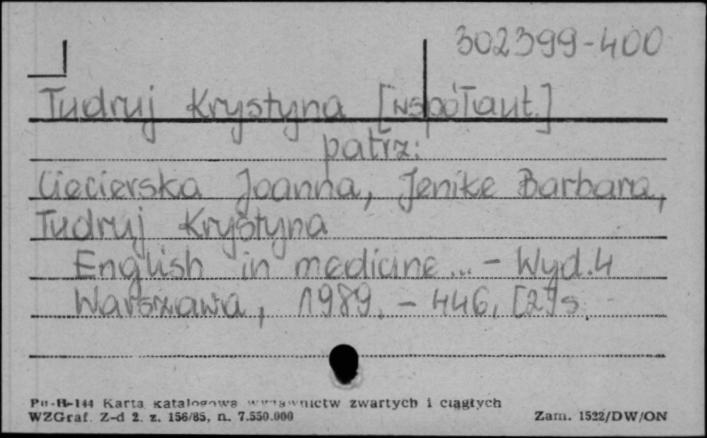 302399-400
Tudruj Krystyna [współaut.]
patrz:
Ciecierska Joanna, Jenike Barbara,
Tudruj Krystyna
English in medicine... - Wyd.4
Warszawa, 1989. - 446, [2] s.
Pu-H-144 Karta katalogowa wydawnictw zwartych i ciągłych
WZGraf. Z-d 2. z. 156/85, n. 7.550.000
Zam. 1522/DW/ON